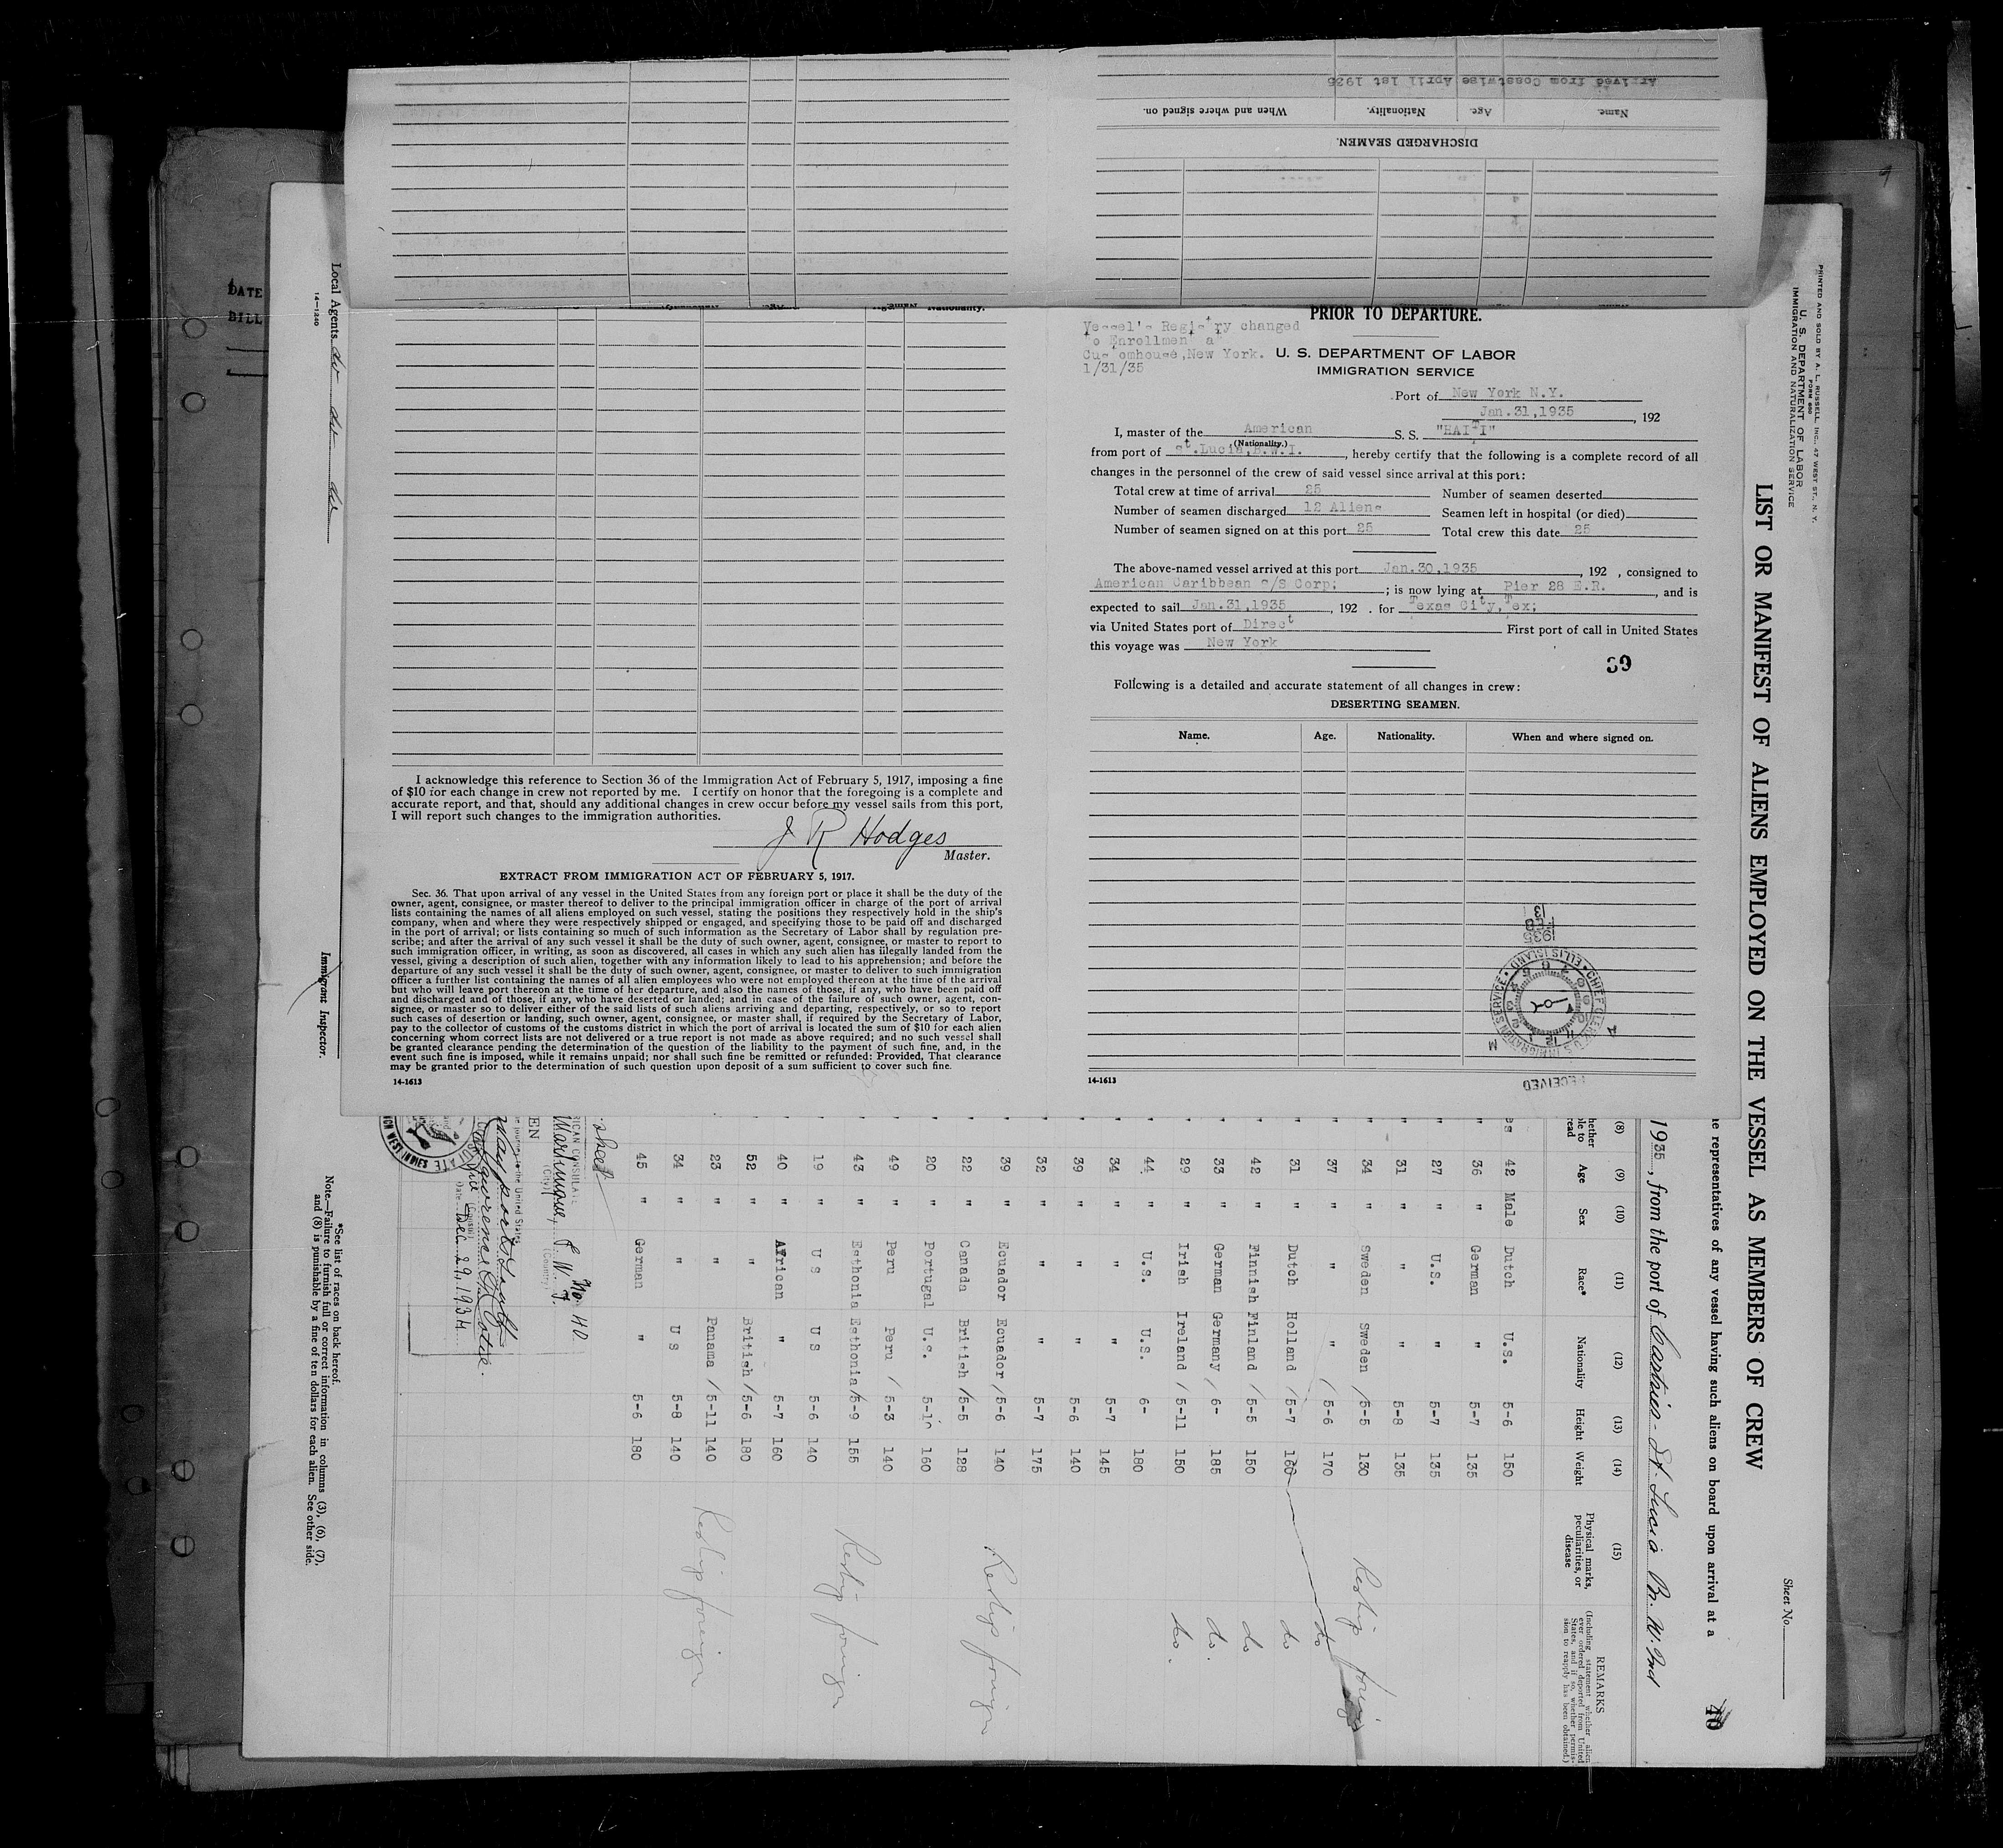 Arrived from Coastwise April 1st 1935
Name. Age. Nationality. When and where signed on.
DISCHARGED SEAMEN.
PRIOR TO DEPARTURE.
Vessel's Registry changed
to Enrollment at
Customhouse,New York.
1/31/35
U. S. DEPARTMENT OF LABOR
IMMIGRATION SERVICE
Port of New York N.Y.
Jan.31,1935, 192
I, master of the American S. S. "HAITI"
(Nationality.)
from port of St.Lucia,B.W.I., hereby certify that the following is a complete record of all
changes in the personnel of the crew of said vessel since arrival at this port:
Total crew at time of arrival 25 Number of seamen deserted
Number of seamen discharged 12 Aliens Seamen left in hospital (or died)
Number of seamen signed on at this port 25 Total crew this date 25
The above-named vessel arrived at this port Jan.30,1935, 192 , consigned to
American Caribbean S/S Corp; ; is now lying at Pier 28 E.R., and is
expected to sail Jan.31,1935, 192 . for Texas City,Tex;
via United States port of Direct First port of call in United States
this voyage was New York
39
Following is a detailed and accurate statement of all changes in crew:
DESERTING SEAMEN.
Name. Age. Nationality. When and where signed on.
1935
FEB
CHIEF CLERK U.S. IMMIGRATION SERVICE • ELLIS ISLAND •
RECEIVED
14-1613
I acknowledge this reference to Section 36 of the Immigration Act of February 5, 1917, imposing a fine
of $10 for each change in crew not reported by me. I certify on honor that the foregoing is a complete and
accurate report, and that, should any additional changes in crew occur before my vessel sails from this port,
I will report such changes to the immigration authorities.
J R Hodges
Master.
EXTRACT FROM IMMIGRATION ACT OF FEBRUARY 5, 1917.
Sec. 36. That upon arrival of any vessel in the United States from any foreign port or place it shall be the duty of the
owner, agent, consignee, or master thereof to deliver to the principal immigration officer in charge of the port of arrival
lists containing the names of all aliens employed on such vessel, stating the positions they respectively hold in the ship's
company, when and where they were respectively shipped or engaged, and specifying those to be paid off and discharged
in the port of arrival; or lists containing so much of such information as the Secretary of Labor shall by regulation pre-
scribe; and after the arrival of any such vessel it shall be the duty of such owner, agent, consignee, or master to report to
such immigration officer, in writing, as soon as discovered, all cases in which any such alien has illegally landed from the
vessel, giving a description of such alien, together with any information likely to lead to his apprehension; and before the
departure of any such vessel it shall be the duty of such owner, agent, consignee, or master to deliver to such immigration
officer a further list containing the names of all alien employees who were not employed thereon at the time of the arrival
but who will leave port thereon at the time of her departure, and also the names of those, if any, who have been paid off
and discharged and of those, if any, who have deserted or landed; and in case of the failure of such owner, agent, con-
signee, or master so to deliver either of the said lists of such aliens arriving and departing, respectively, or so to report
such cases of desertion or landing, such owner, agent, consignee, or master shall, if required by the Secretary of Labor,
pay to the collector of customs of the customs district in which the port of arrival is located the sum of $10 for each alien
concerning whom correct lists are not delivered or a true report is not made as above required; and no such vessel shall
be granted clearance pending the determination of the question of the liability to the payment of such fine, and, in the
event such fine is imposed, while it remains unpaid; nor shall such fine be remitted or refunded: Provided, That clearance
may be granted prior to the determination of such question upon deposit of a sum sufficient to cover such fine.
14-1613
DATE
BILL
PRINTED AND SOLD BY A. L. RUSSELL, INC., 47 WEST ST., N. Y.
FORM 680
U. S. DEPARTMENT OF LABOR
IMMIGRATION AND NATURALIZATION SERVICE
Sheet No.
LIST OR MANIFEST OF ALIENS EMPLOYED ON THE VESSEL AS MEMBERS OF CREW
40
representatives of any vessel having such aliens on board upon arrival at a
1935, from the port of Castries - St. Lucia Br. W. Ind
(8) (9) (10) (11) (12) (13) (14) (15) REMARKS
Age Sex Race* Nationality Height Weight Physical marks, peculiarities, or disease
(Including statement whether alien ever ordered deported from United States, and if so, whether permission to reapply has been obtained.)
42 Male Dutch U.S. 5-6 150
" 36 " German " 5-7 135
" 27 " U.S. " 5-7 135
" 31 " " " 5-8 135
" 34 " Sweden Sweden / 5-5 130 Reship foreign
" 37 " " " / 5-6 170 do
" 31 " Dutch Holland / 5-7 160 do
" 42 " Finnish Finland / 5-5 150 do
" 33 " German Germany / 6- 185 do.
" 29 " Irish Ireland / 5-11 150 do.
" 44 " U.S. U.S. 6- 180
" 34 " " " 5-7 145
" 39 " " " 5-6 140
" 32 " " " 5-7 175
" 39 " Ecuador Ecuador / 5-6 140 Reship foreign
" 22 " Canada British / 5-5 128
" 20 " Portugal U.S. 5-10 160
" 49 " Peru Peru / 5-3 140
" 43 " Esthonia Esthonia / 5-9 155 Reship foreign
" 19 " U S U S 5-6 140
" 40 " African " 5-7 160
" 52 " " British / 5-6 180
" 23 " " Panama / 5-11 140 Reship foreign
" 34 " " U S 5-8 140
" 45 " German " 5-6 180
sheet
No 40
AMERICAN CONSULATE
Martinique, F. W. I.
(City) (Country)
the journey to the United States
Laurence
(Consul)
Date Dec. 29, 1934
FRENCH WEST INDIES
*See list of races on back hereof.
Note.—Failure to furnish full or correct information in columns (3), (6), (7),
and (8) is punishable by a fine of ten dollars for each alien. See other side.
Local Agents do do do
14—1240
Immigrant Inspector.